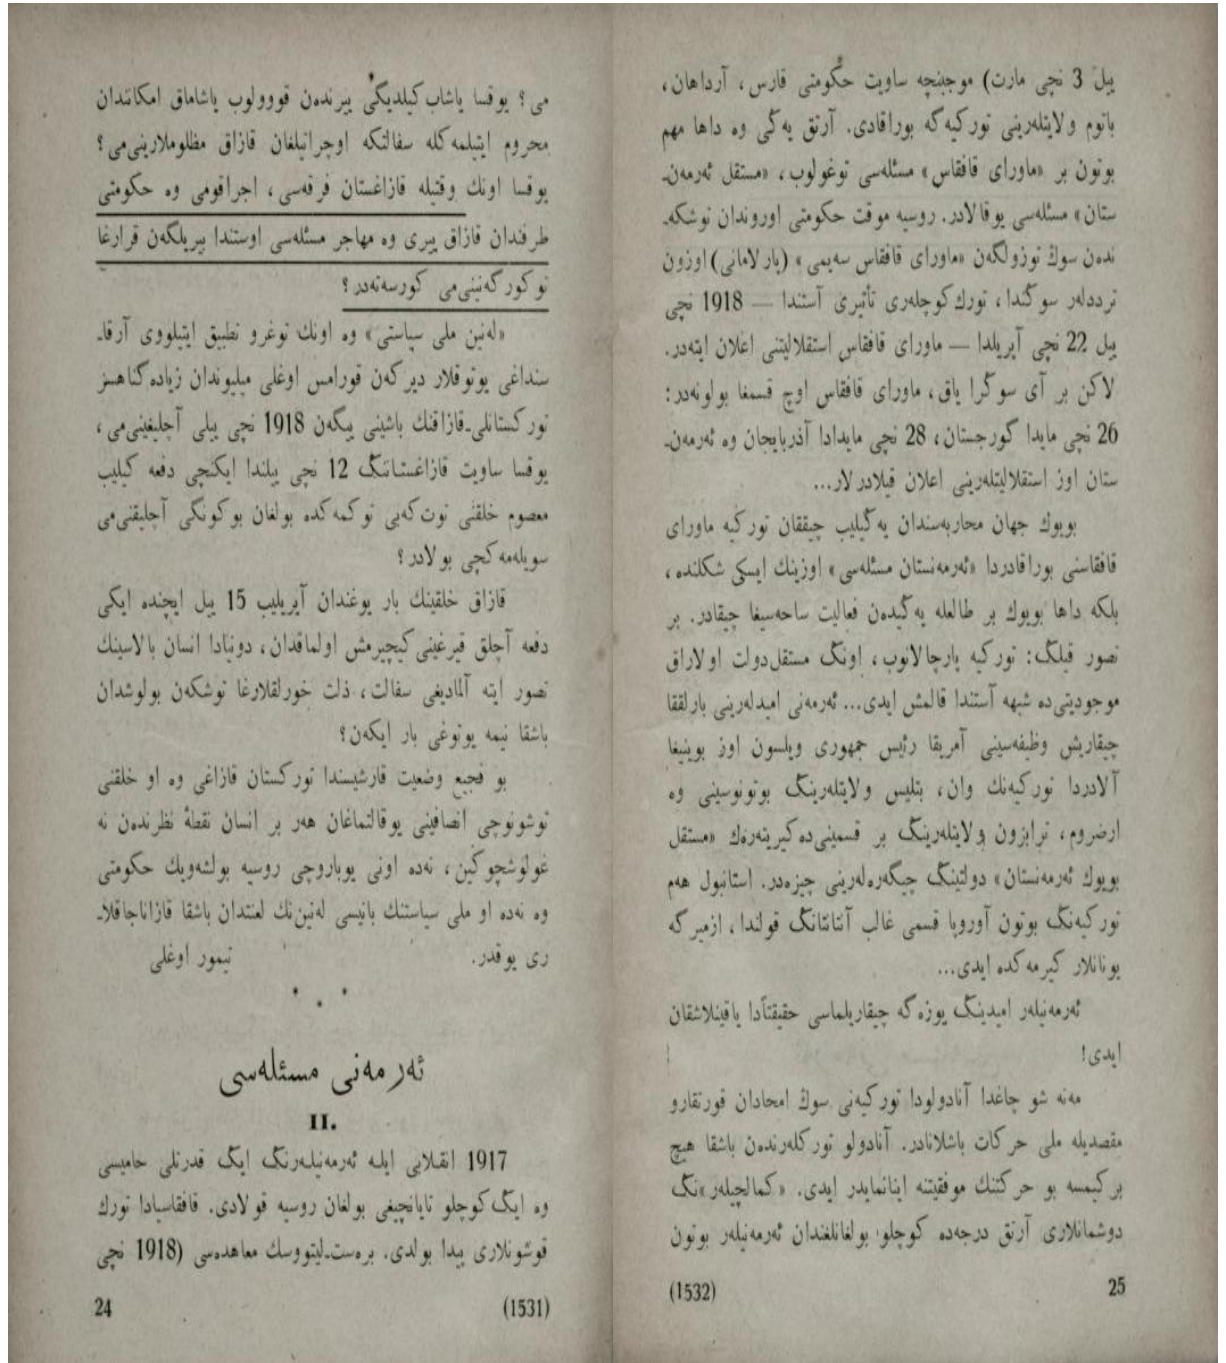 می؟ یوقسا یاشاب کیلدیگی ییرندەن قووولوب یاشاماق امکانندان
محروم ایتیلمەکلە سفالتکە اوچراتیلغان قازاق مظلوملارینی‌می؟
یوقسا اونك وقتیلە قازاغستان فرقەسی، اجراقومی وە حکومتی
طرفندان قازاق ییری وە مهاجر مسئلەسی اوستندا بیریلگەن قرارغا
توکورگەنینی‌می کورسەتەدر؟
«لەنین ملی سیاستی» وە اونك توغرو تطبیق ایتیلووی آرقا۔
سنداغی یوتوقلار دیرکەن قورامس اوغلی میلیوندان زیادە گناهسز
تورکستانلی۔قازاقنك باشینی ییگەن 1918 نچی ییلی آچلیغینی‌می،
یوقسا ساویت قازاغستاننڭ 12 نچی ییلندا ایکنچی دفعە کیلیب
معصوم خلقنی توت‌کەبی توکمەکدە بولغان بوکونگی آچلیقنی‌می
سویلەمەکچی بولادر؟
قازاق خلقینك بار یوغندان آیریلیب 15 ییل ایچندە ایکی
دفعە آچلق قیرغینی کیچیرمش اولماقدان، دونیادا انسان بالاسینك
تصور ایتە آلمادیغی سفالت، ذلت خورلقلارغا توشکەن بولوشدان
باشقا نیمە یوتوغی بار ایکەن؟
بو فجیع وضعیت قارشیسندا تورکستان قازاغی وە او خلقنی
توشونوچی انصافینی یوقالتماغان هەر بر انسان نقطۀ نظرندەن نە
غولوشچوکین، نەدە اونی یوباروچی روسیە بولشەویك حکومتی
وە نەدە او ملی سیاستنك بانیسی لەنین‌نك لعنتدان باشقا قازاناجاقلا۔
ری یوقدر.
تیمور اوغلی
ئەرمەنی مسئلەسی
II.
1917 انقلابی ایلە ئەرمەنیلەرنڭ ایڭ قدرتلی حامیسی
وە ایڭ کوچلو تایانچیغی بولغان روسیە قولادی. قافقاسیادا تورك
قوشونلاری پیدا بولدی. برەست۔لیتووسك معاهدەسی (1918 نچی
24
(1531)
ییل 3 نچی مارت) موجبنچە ساویت حکومتی قارس، آرداهان،
باتوم ولایتلەرینی تورکیەگە بوراقادی. آرتق یەڭی وە داها مهم
بوتون بر «ماورای قافقاس» مسئلەسی توغولوب، «مستقل ئەرمەن۔
ستان» مسئلەسی یوقالادر. روسیە موقت حکومتی اوروندان توشکە۔
ندەن سوڭ توزولگەن «ماورای قافقاس سەیمی» (پارلامانی) اوزون
ترددلەر سوڭندا، تورك کوچلەری تأثیری آستندا — 1918 نچی
ییل 22 نچی آپریلدا — ماورای قافقاس استقلالیتنی اعلان ایتەدر.
لاکن بر آی سوڭرا یاق، ماورای قافقاس اوچ قسمغا بولونەدر:
26 نچی مایدا گورجستان، 28 نچی مایدادا آذربایجان وە ئەرمەن۔
ستان اوز استقلالیتلەرینی اعلان قیلادرلار...
بویوك جهان محاربەسندان یەڭیلیب چیققان تورکیە ماورای
قافقاسنی بوراقادردا «ئەرمەنستان مسئلەسی» اوزینك ایسکی شکلندە،
بلکە داها بویوك بر طالعلە یەڭیدەن فعالیت ساحەسیغا چیقادر. بر
تصور قیلڭ: تورکیە پارچالانوب، اونڭ مستقل دولت اولاراق
موجودیتی‌دە شبهە آستندا قالمش ایدی... ئەرمەنی امیدلەرینی بارلققا
چیقاریش وظیفەسینی آمریقا رئیس جمهوری ویلسون اوز بوینیغا
آلادردا تورکیەنك وان، بتلیس ولایتلەرینڭ بوتونوسینی وە
ارضروم، ترابزون ولایتلەرینڭ بر قسمینی‌دە کیریتەرەك «مستقل
بویوك ئەرمەنستان» دولتینڭ چیگەرەلەرینی چیزەدر. استانبول هەم
تورکیەنڭ بوتون آوروپا قسمی غالب آنتانتانڭ قولندا، ازمیرگە
یونانلار کیرمەکدە ایدی...
ئەرمەنیلەر امیدینڭ یوزەگە چیقاریلماسی حقیقتاًدا یاقینلاشقان
ایدی!
مەنە شو چاغدا آنادولودا تورکیەنی سوڭ امحادان قورتقارو
مقصدیلە ملی حرکات باشلانادر. آنادولو تورکلەرندەن باشقا هیچ
برکیمسە بو حرکتنك موفقیتنە اینانمایدر ایدی. «کمالچیلەر»نڭ
دوشمانلاری آرتق درجەدە کوچلو بولغانلغندان ئەرمەنیلەر بوتون
(1532)
25